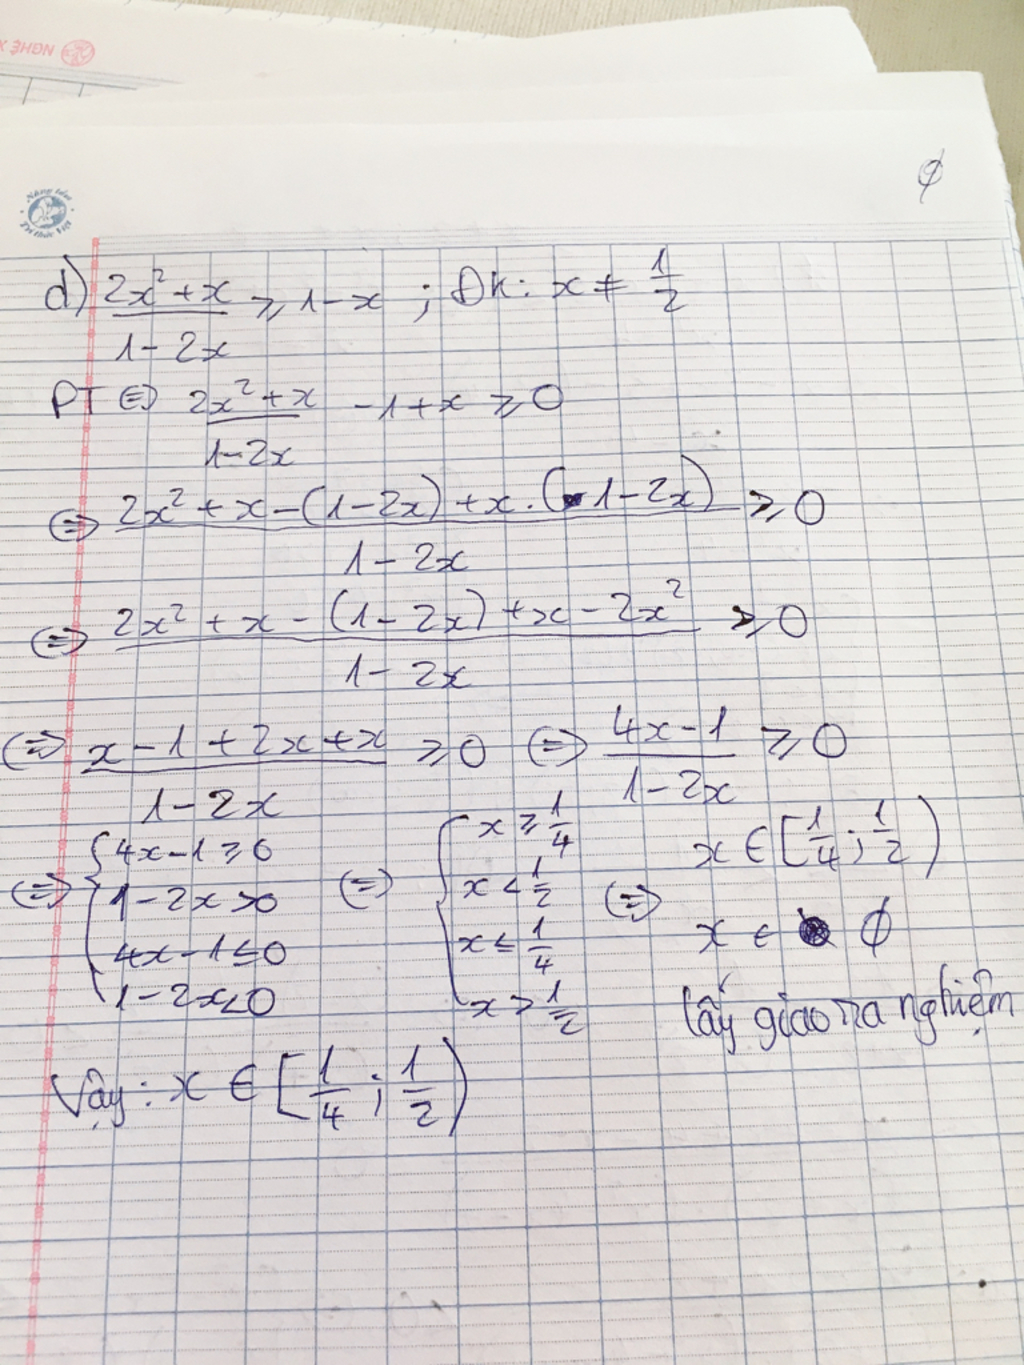 NGHỆ
∅
d) (2x² + x)/(1 - 2x) ≥ 1 - x ; ĐK: x ≠ 1/2
PT ⇔ (2x² + x)/(1 - 2x) - 1 + x ≥ 0
⇔ (2x² + x - (1 - 2x) + x . (1 - 2x))/(1 - 2x) ≥ 0
⇔ (2x² + x - (1 - 2x) + x - 2x²)/(1 - 2x) ≥ 0
⇔ (x - 1 + 2x + x)/(1 - 2x) ≥ 0 ⇔ (4x - 1)/(1 - 2x) ≥ 0
⇔ { 4x - 1 ≥ 0 ⇔ { x ≥ 1/4 ⇔ x ∈ [1/4 ; 1/2)
1 - 2x > 0 x < 1/2
4x - 1 ≤ 0 x ≤ 1/4 x ∈ ∅
1 - 2x < 0 x > 1/2 lấy giao ra nghiệm
Vậy: x ∈ [1/4 ; 1/2)